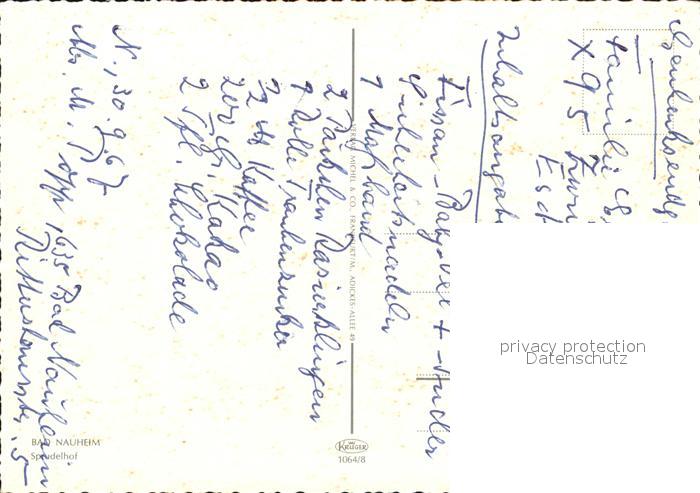 Geschenksendg
Familie
X 95
Inhaltsangabe
Fissan-Babyöl + -Puder
Sicherheitsnadeln
1 Maßband
2 Päckchen Rasierklingen
1 Rolle Traubenzucker
1/2 Kaffee
200 gr. Kakao
2 Tfl. Schokolade
N., 30.9.67
Abs. M. Popp, 635 Bad Nauheim
VERLAG MICHEL & CO. FRANKFURT/M., ADICKES-ALLEE 49
KRÜGER
1064/8
BAD NAUHEIM
Sprudelhof
privacy protection
Datenschutz